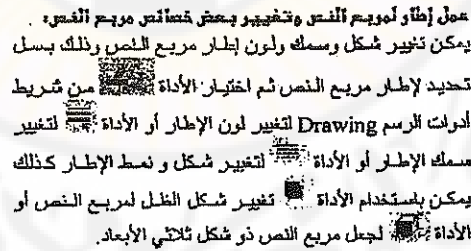 عمل إطار لمربع النص وتغيير بعض خصائص مربع النص:
يمكن تغيير شكل وسمك ولون إطار مربع النص وذلك بعمل
تحديد لإطار مربع النص ثم اختيار الأداة من شريط
أدوات الرسم Drawing لتغيير لون الإطار أو الأداة لتغيير
سمك الإطار أو الأداة لتغيير شكل و نمط الإطار كذلك
يمكن باستخدام الأداة تغيير شكل الظل لمربع النص أو
الأداة لجعل مربع النص ذو شكل ثلاثي الأبعاد.